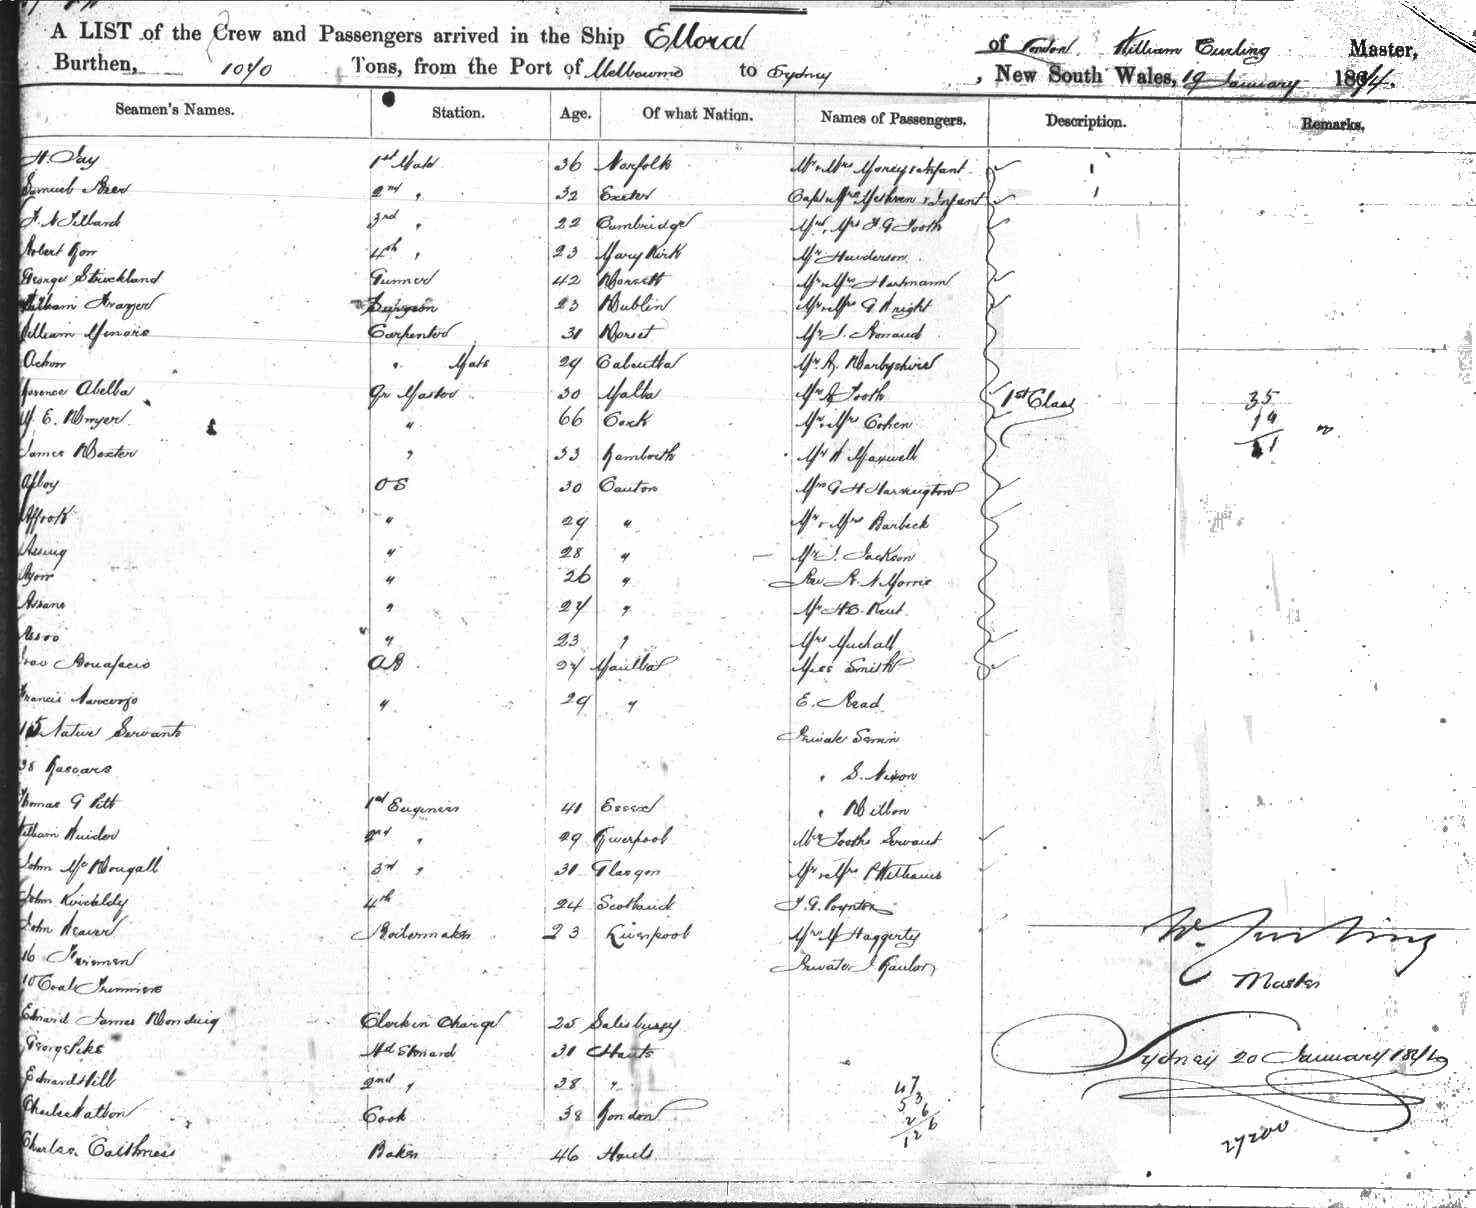 A LIST of the Crew and Passengers arrived in the Ship Ellora of London William Curling Master,
Burthen, 1040 Tons, from the Port of Melbourne to Sydney, New South Wales, 19 January 1864.
Seamen's Names. Station. Age. Of what Nation. Names of Passengers. Description. Remarks.
H. Jay 1st Mate 36 Norfolk Mr & Mrs Money & Infant
Samuel 2nd " 32 Exeter Capt & Mrs Methven & Infant
3rd " 22 Cambridge Mr & Mrs F G Tooth
Robert 4th " 23 Mary Kirk Mr Henderson
George Strickland Gunner 42 Dorsett Mr & Mrs Hartmann
William Frazer Surgeon 23 Dublin Mr & Mrs G Wright
William Minors Carpenter 31 Dorset Mr J.
Achow " Mate 29 Calcutta Mr A. Darbyshire
Abella Qr Master 30 Malta Mr R Tooth 1st Class 35
E. Dwyer " 66 Cork Mr & Mrs Cohen
James Baxter " 33 Lambeth Mr W Maxwell
Afboy OS 30 Canton Mrs G H Harrington
Affook " 29 " Mr & Mrs Barbeck
Assing " 28 " Mr J. Jackson
Ayow " 26 " Rev R. N Morris
Assane " 24 " Mr H.C. Kent
Assoo " 23 " Mrs Muchall
Bonafacio AB 24 Manilla Miss Smith
Francis " 29 " E. Read
15 Native Servants Private
38 Lascars " S. Nixon
Thomas G Pitt 1st Engineer 41 Essex " Dillon
William 2nd " 29 Liverpool Mr Tooths Servant
John McDougall 3rd " 31 Glasgow Mr & Mrs P Williams
John Kirkaldy 4th 24 Scotland J. G. Poynter
John Weaver Boilermaker 23 Liverpool Mr M Haggerty W. Curling
16 Firemen Private J Lawlor Master
10 Coal Trimmers
Edward James Clerk in Charge 25 Salesbury
George Pike Hd Steward 31 Hants Sydney 20 January 1864
Edward Hill 2nd " 28 " 47
53
Charles Watson Cook 38 London 26
126
27200
Charles Caithness Baker 46 Hants